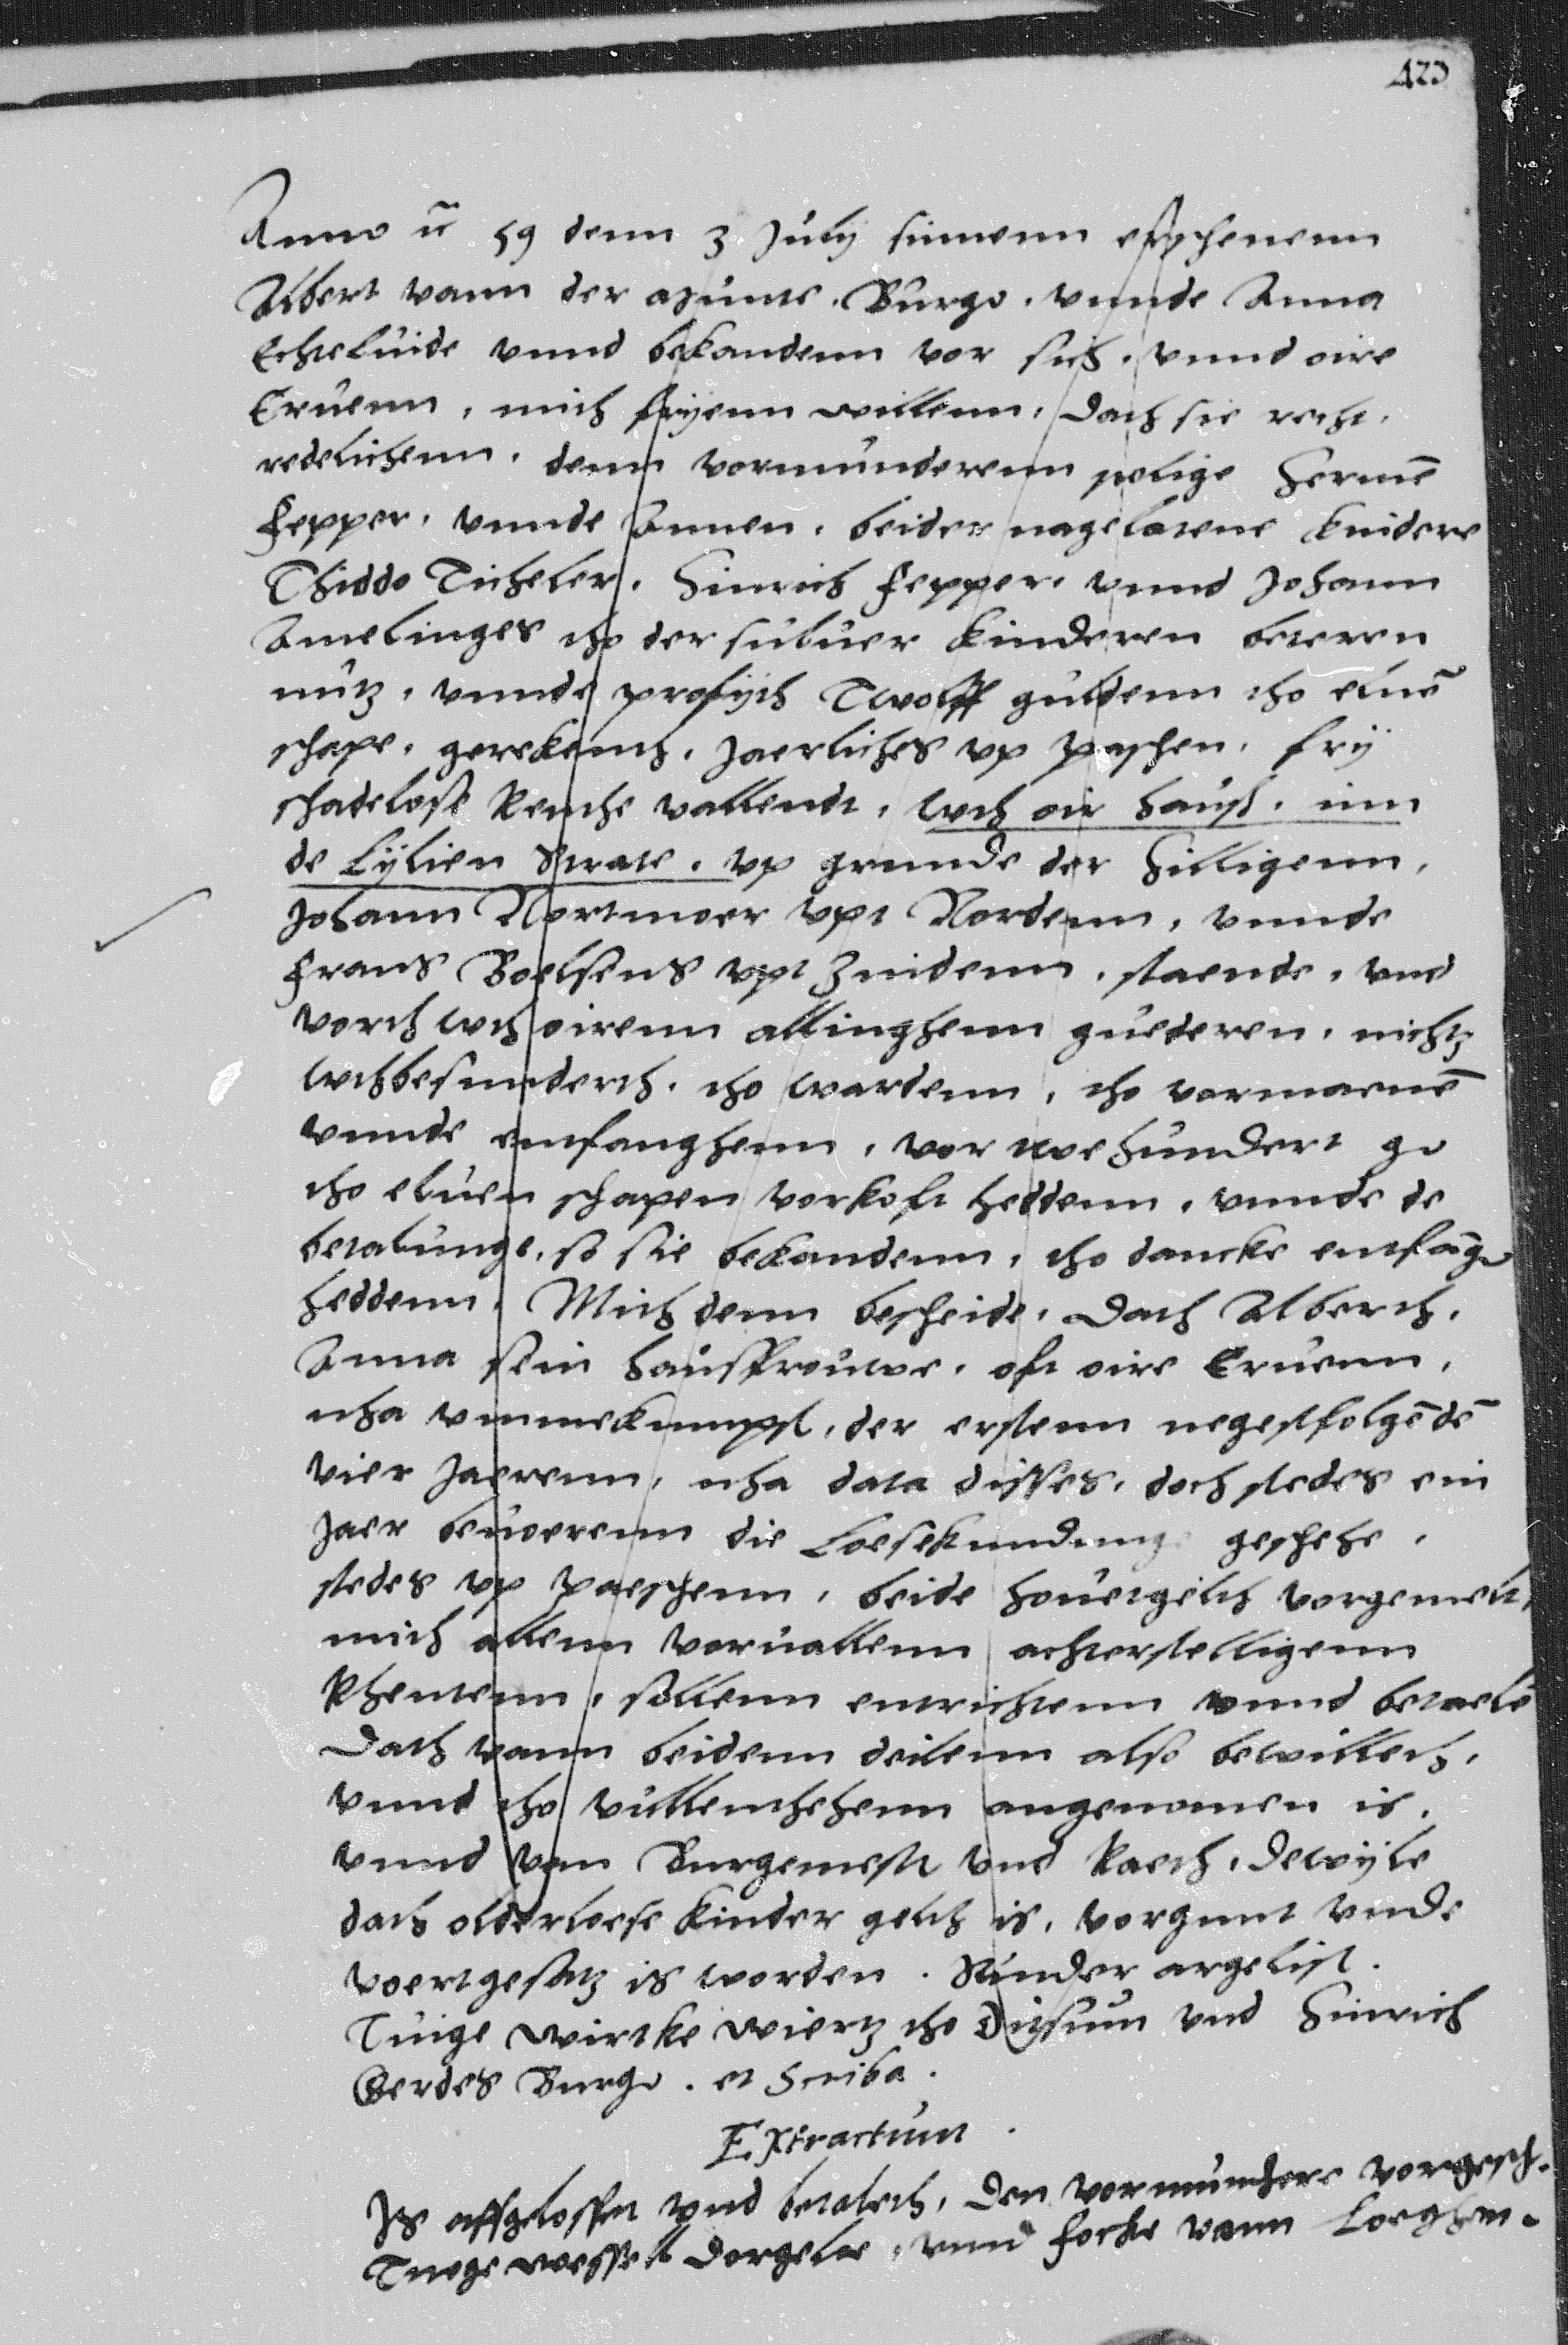 423
Anno u 59 denn 3 July sinnenn erschenenn
Albert vann der munte. Burgr. vnnde Anna
Echteluide vnnd bekandenn vor sich. vnnd oire
Eruenn, mith fryenn willenn, dath sie recht.
redelichenn. denn vormunderenn selige Hermē
Fepper. vnnde Annen. beider nagelatene kindere
Thiddo Ticheler. Hinrich Fepper. vnnd Johann
Amelinges tho der suluer kinderen beteren
nutz. vnnde profyth Twolff guldenn tho eluē
schape. gerekenth. Jaerliches vp paschen. fry
schadelose Renthe vallendt. wth oir hauss. inn
de Lylien Strate. vp grunde der Hilligenn.
Johann Nortmoer vpt Nordenn. vnnde
Frans Boelsens vpt Zuidenn. staende. vnd
vorth wth oirenn allinghenn guederen. nichtz
wthbesunderth. tho wardenn, tho vormanē
vnnde entfanghenn, vor twehundert gl
tho eluen schapen vorkoft heddenn. vnnde de
betalunge. so sie bekandenn. tho dancke entfāgē
heddenn. Mith denn bescheide. Dath Alberth.
Anna sein haussfrouwe. oft oire Eruenn.
nha vmmekumpst. der erstenn negestfolgēdē
vier Jaerenn. nha data disses. doch stedes ein
Jaer beuoerenn die Loesekundung geschehe.
stedes vp paeschenn. beide houetgelth vorgemelt.
mith allenn voruallenn achterstelligenn
Rhentenn. sollenn entrichtenn vnnd betaelē
Dath vann beidenn deilenn also bewilleth.
vnnd tho vullenthehenn angenomen is.
vnnd van Burgemestr vnd Raeth. Dewyle
dath olderloese kinder gelth is. vorgunt vnde
voertgesatz is worden. Sunder argelist.
Tuige wirtke wiertz tho Ditzum vnd Hinrich
Gerdes Burgr. et Scriba.
Extractum.
Is affgelosset vnd betaleth. den vormunthere vorgesch.
Tuege wessell Dorgeloe. vnnd Focke vann Loeghen.